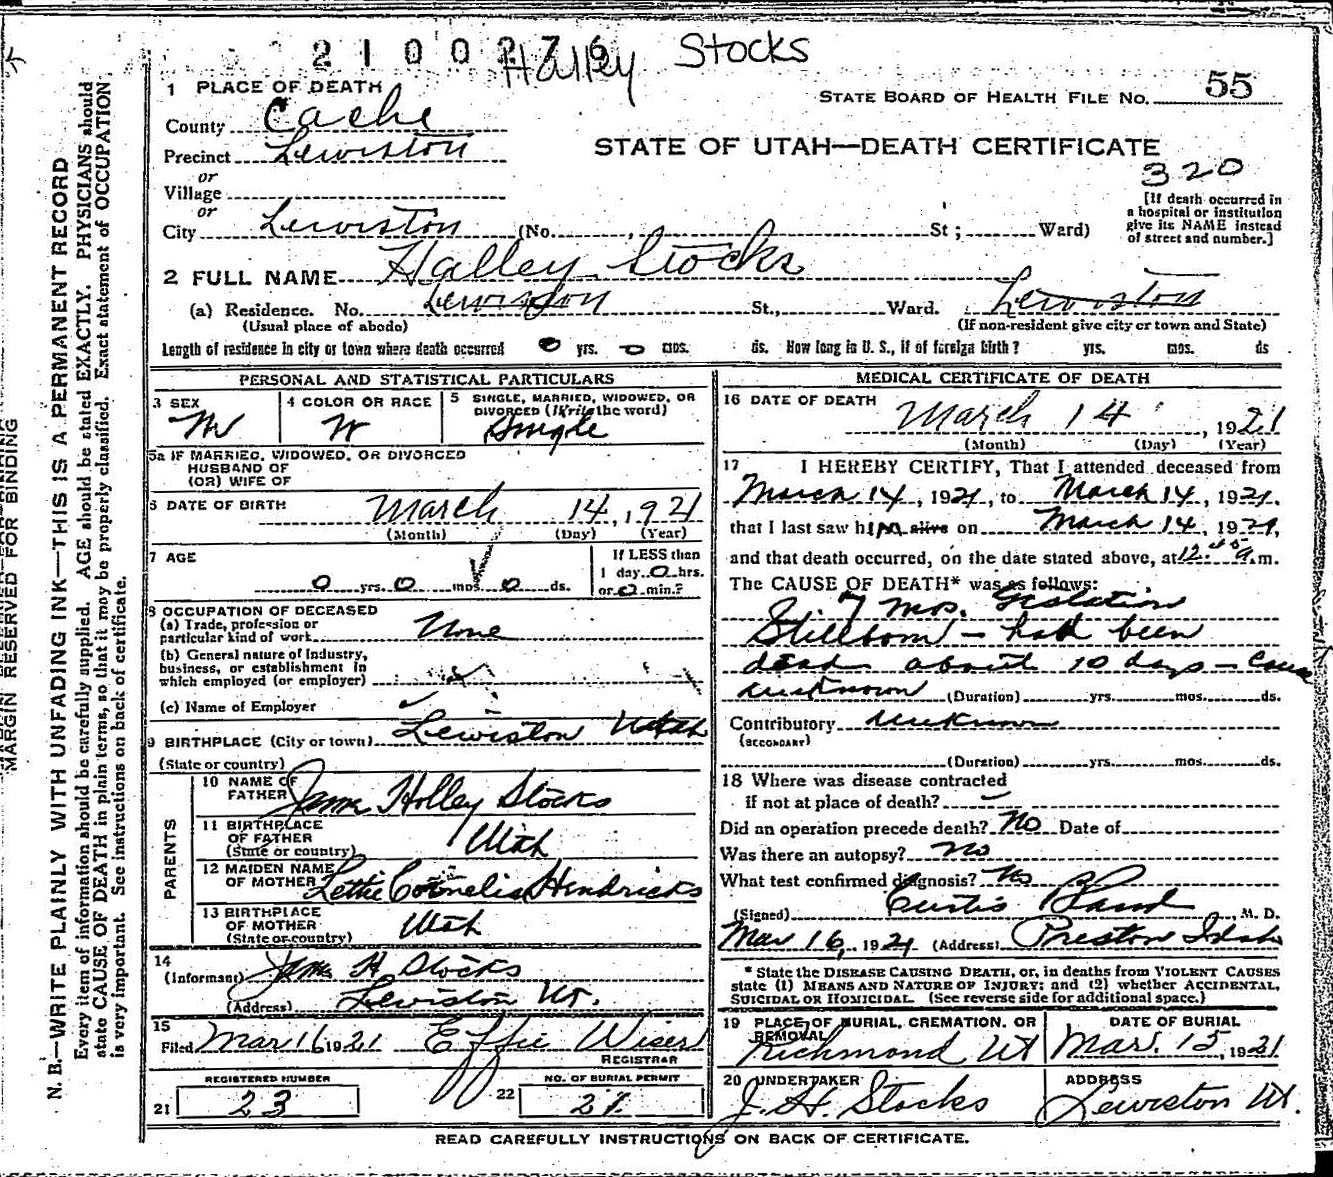 2100276
Halley Stocks
1 PLACE OF DEATH
STATE BOARD OF HEALTH FILE NO. 55
County Cache
Precinct Lewiston
STATE OF UTAH—DEATH CERTIFICATE
320
or
Village
or
City Lewiston (No. , St; Ward)
[If death occurred in
a hospital or institution
give its NAME instead
of street and number.]
2 FULL NAME Halley Stocks
(a) Residence. No. Lewiston St., Ward. Lewiston
(Usual place of abode) (If non-resident give city or town and State)
Length of residence in city or town where death occurred 0 yrs. 0 mos. ds. How long in U. S., if of foreign birth? yrs. mos. ds
PERSONAL AND STATISTICAL PARTICULARS
3 SEX M
4 COLOR OR RACE W
5 SINGLE, MARRIED, WIDOWED, OR
DIVORCED (Write the word)
Single
5a IF MARRIED, WIDOWED, OR DIVORCED
HUSBAND OF
(OR) WIFE OF
6 DATE OF BIRTH March 14, 1921
(Month) (Day) (Year)
7 AGE
0 yrs. 0 mos. 0 ds.
If LESS than
1 day 0 hrs.
or 0 min.?
8 OCCUPATION OF DECEASED
(a) Trade, profession or
particular kind of work None
(b) General nature of Industry,
business, or establishment in
which employed (or employer)
(c) Name of Employer
9 BIRTHPLACE (City or town) Lewiston Utah
(State or country)
PARENTS
10 NAME OF
FATHER James Holley Stocks
11 BIRTHPLACE
OF FATHER
(State or country) Utah
12 MAIDEN NAME
OF MOTHER Lettie Cornelia Hendricks
13 BIRTHPLACE
OF MOTHER
(State or country) Utah
14
(Informant) James H. Stocks
(Address) Lewiston Ut.
15
Filed Mar 16 1921 Effie Wiser
REGISTRAR
REGISTERED NUMBER
21 23
NO. OF BURIAL PERMIT
22 21
MEDICAL CERTIFICATE OF DEATH
16 DATE OF DEATH
March 14, 1921
(Month) (Day) (Year)
17 I HEREBY CERTIFY, That I attended deceased from
March 14, 1921, to March 14, 1921.
that I last saw him alive on March 14, 1921,
and that death occurred, on the date stated above, at 12:45 a.m.
The CAUSE OF DEATH* was as follows:
7 mos. Gestation
Stillborn — had been
dead about 10 days — Cause
unknown (Duration) yrs. mos. ds.
Contributory unknown
(SECONDARY)
(Duration) yrs. mos. ds.
18 Where was disease contracted
If not at place of death?
Did an operation precede death? No Date of
Was there an autopsy? no
What test confirmed diagnosis?
(Signed) Curtis Bland, M. D.
Mar 16, 1921 (Address) Preston Idaho
* State the DISEASE CAUSING DEATH, or, in deaths from VIOLENT CAUSES
state (1) MEANS AND NATURE OF INJURY; and (2) whether ACCIDENTAL,
SUICIDAL OR HOMICIDAL. (See reverse side for additional space.)
19 PLACE OF BURIAL, CREMATION, OR
REMOVAL
Richmond Ut
DATE OF BURIAL
Mar. 15, 1921
20 UNDERTAKER
J. H. Stocks
ADDRESS
Lewiston Ut.
READ CAREFULLY INSTRUCTIONS ON BACK OF CERTIFICATE.
MARGIN RESERVED FOR BINDING
N. B.—WRITE PLAINLY WITH UNFADING INK—THIS IS A PERMANENT RECORD
Every item of information should be carefully supplied. AGE should be stated EXACTLY. PHYSICIANS should
state CAUSE OF DEATH in plain terms, so that it may be properly classified. Exact statement of OCCUPATION
is very important. See instructions on back of certificate.